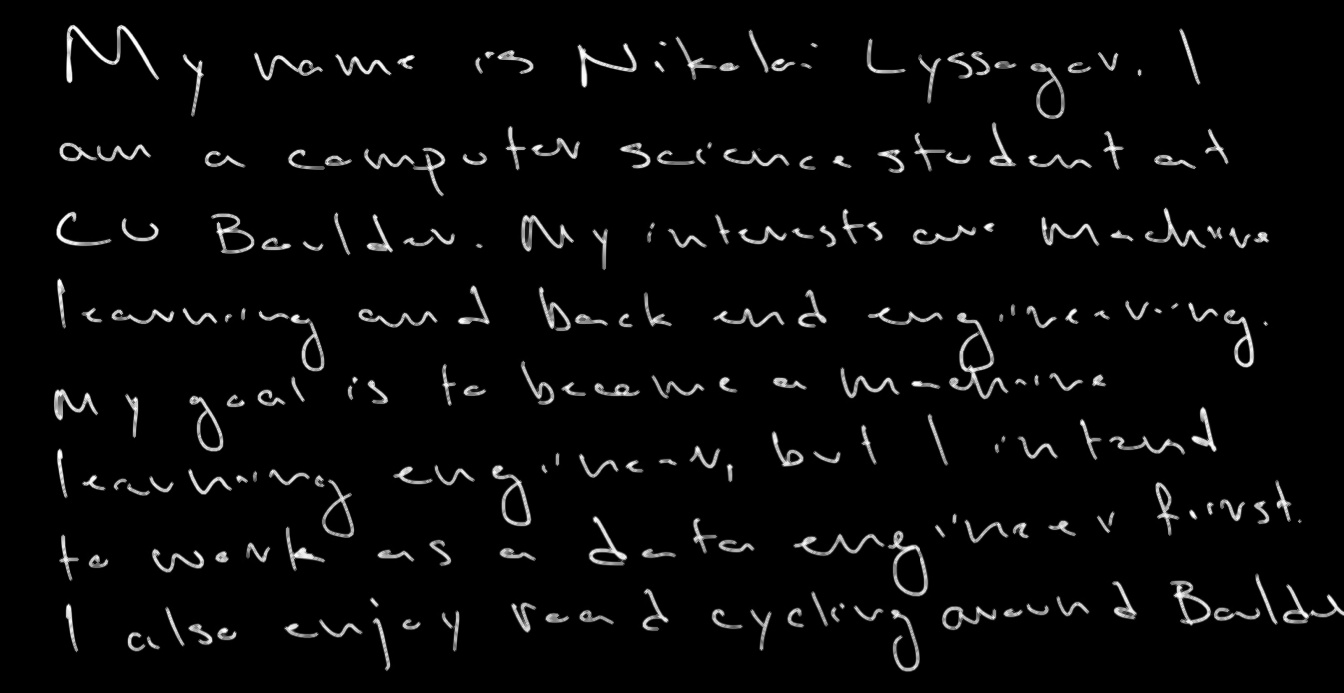 My name is Nikolai Lyssogov. I
am a computer science student at
CU Boulder. My interests are machine
learning and back end engineering.
My goal is to become a machine
learning engineer, but I intend
to work as a data engineer first.
I also enjoy road cycling around Boulder